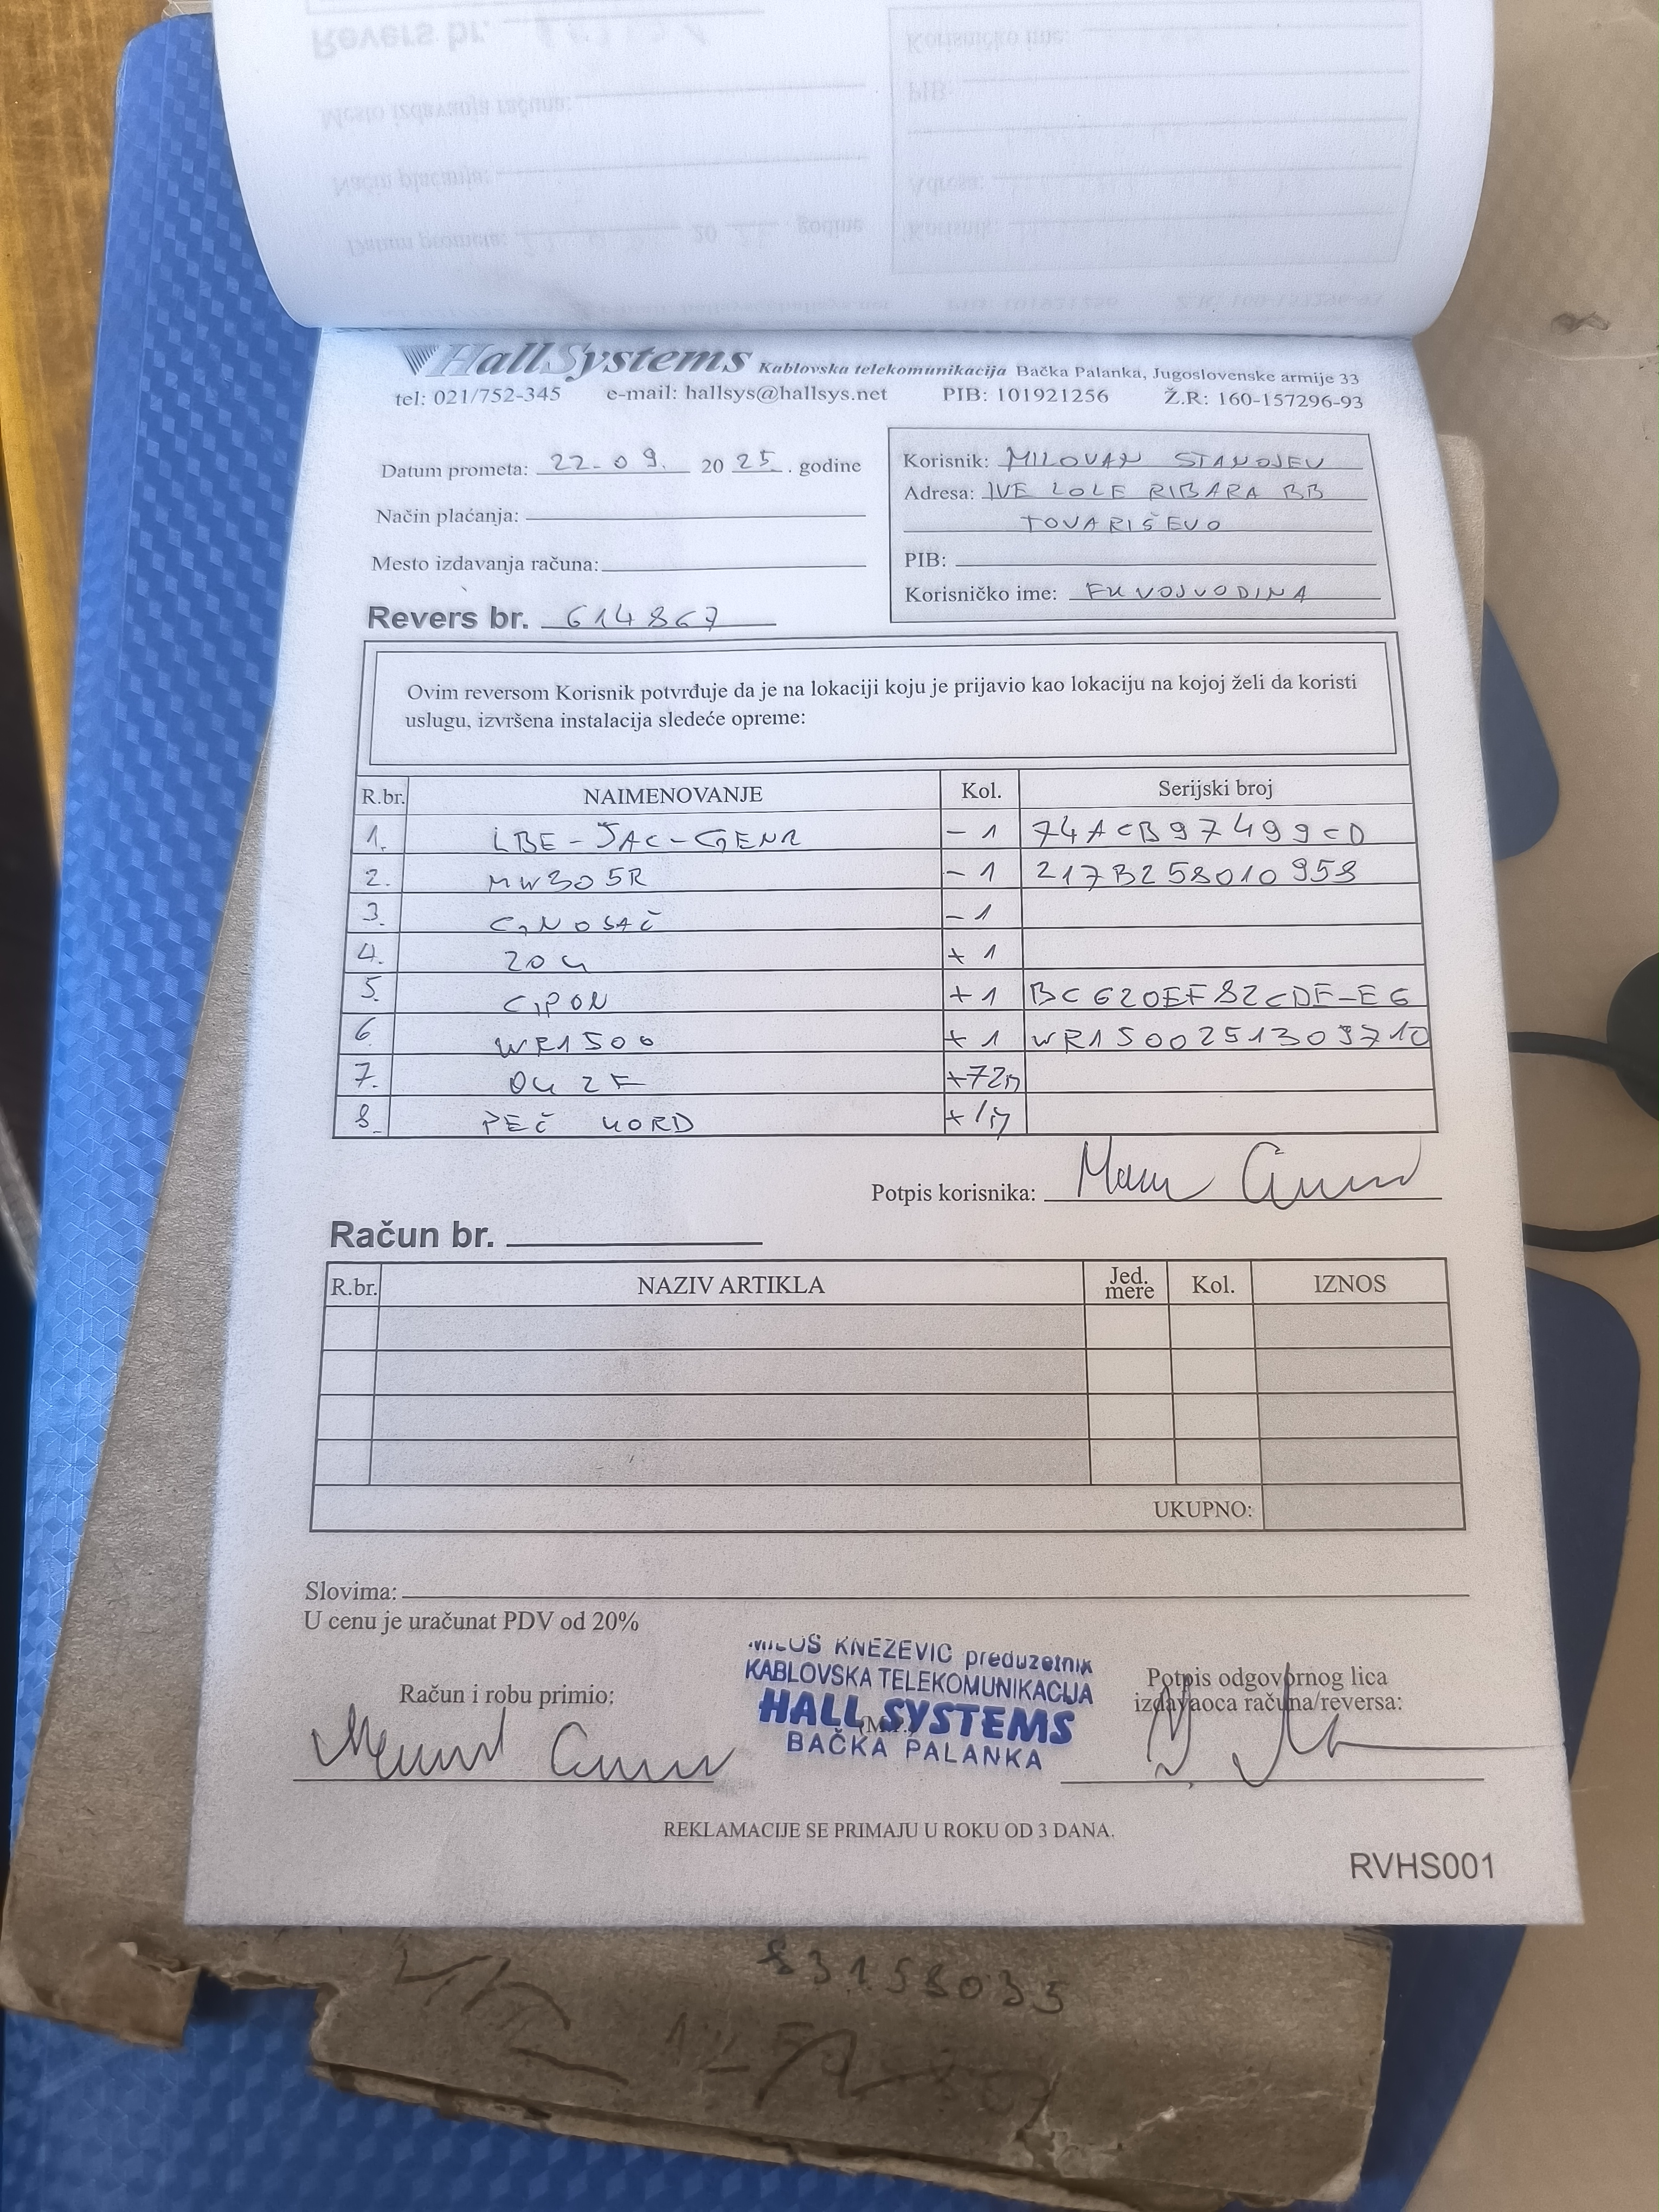 HallSystems Kablovska telekomunikacija Bačka Palanka, Jugoslovenske armije 33
tel: 021/752-345 e-mail: hallsys@hallsys.net PIB: 101921256 Ž.R: 160-157296-93
Datum prometa: 22-09. 2025. godine
Način plaćanja:
Mesto izdavanja računa:
Revers br. 614867
Korisnik: MILOVAN STANOJEV
Adresa: IVE LOLE RIBARA BB
TOVARIŠEVO
PIB:
Korisničko ime: FKVOJVODINA
Ovim reversom Korisnik potvrđuje da je na lokaciji koju je prijavio kao lokaciju na kojoj želi da koristi
uslugu, izvršena instalacija sledeće opreme:
R.br. NAIMENOVANJE Kol. Serijski broj
1. LBE-5AC-GEN2 -1 74ACB97499CD
2. MW305R -1 217B258010958
3. G,NOSAČ -1
4. ZOK +1
5. GPON +1 BC620EF82CDF-E6
6 WR1500 +1 WR1500251309710
7. OK 2F +72m
8. PEČ KORD
Potpis korisnika:
Račun br.
R.br. NAZIV ARTIKLA Jed. mere Kol. IZNOS
UKUPNO:
Slovima:
U cenu je uračunat PDV od 20%
Račun i robu primio:
MILOŠ KNEZEVIC preduzetnik
KABLOVSKA TELEKOMUNIKACIJA
HALL SYSTEMS
BAČKA PALANKA
Potpis odgovornog lica
izdavaoca računa/reversa:
REKLAMACIJE SE PRIMAJU U ROKU OD 3 DANA.
RVHS001
83158035